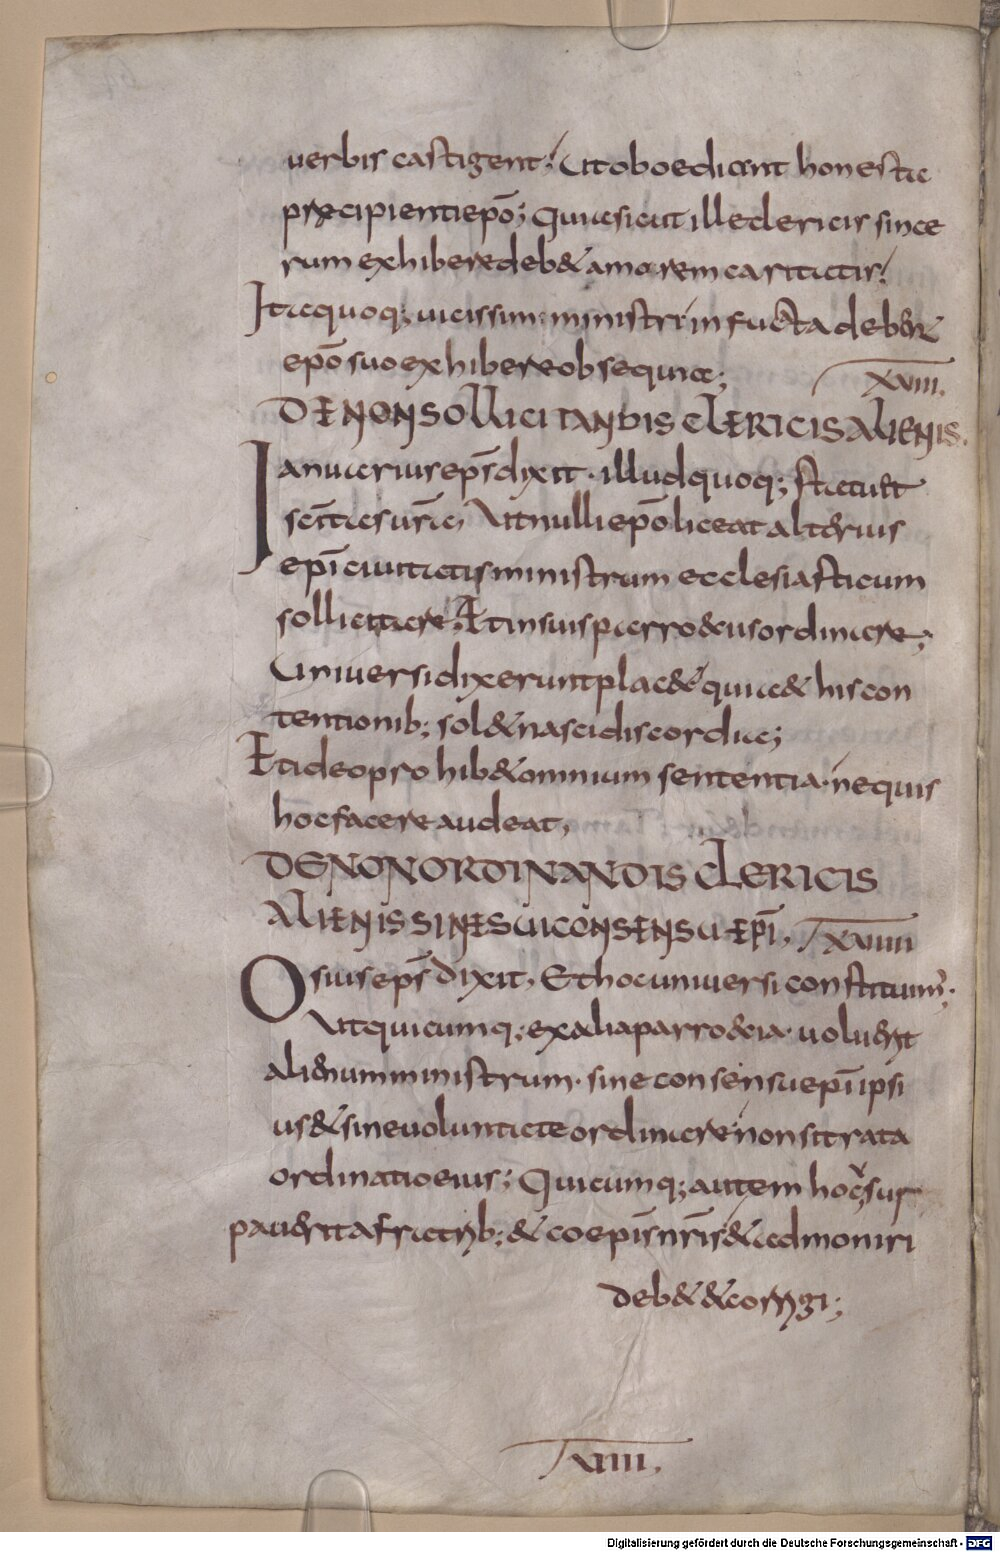 uerbis castigent; Ut oboediant honesta
precipienti epō; Quia sicut ille clericis since
rum exhibere deb& amorem caritatis;
Ita quoq; uicissim ministri infucata debent
epō suo exhibere obsequia;
XVIII.
DE NON SOLLICITANDIS CLERICIS ALIENIS.
Ianuarius eps̄ dixit. illud quoq; statuat
sc̄itas ur̄a, Ut nulli epō liceat alterius
epī ciuitatis ministrum ecclesiasticum
sollicitare, Et in suis parrochiis ordinare;
Uniuersi dixerunt plac& quia & his con
tentionib; sol& nasci discordia;
Et ideo prohib& omnium sententia. ne quis
hoc facere audeat,
DE NON ORDINANDIS CLERICIS
ALIENIS SINE SUI CONSENSU EPĪ, XVIIII
Osius eps̄ dixit, Et hoc uniuersi constituim;
Ut quicumq; ex alia parrochia. uoluerit
alienum ministrum. sine consensu epī ipsi
us & sine uoluntate ordinare non sit rata
ordinatio eius; Quicumq; autem hoc usur
pauerit a fratrib; & coepis̄ nr̄is & admoniri
deb& & corrigi;
XIIII.
Digitalisierung gefördert durch die Deutsche Forschungsgemeinschaft - DFG